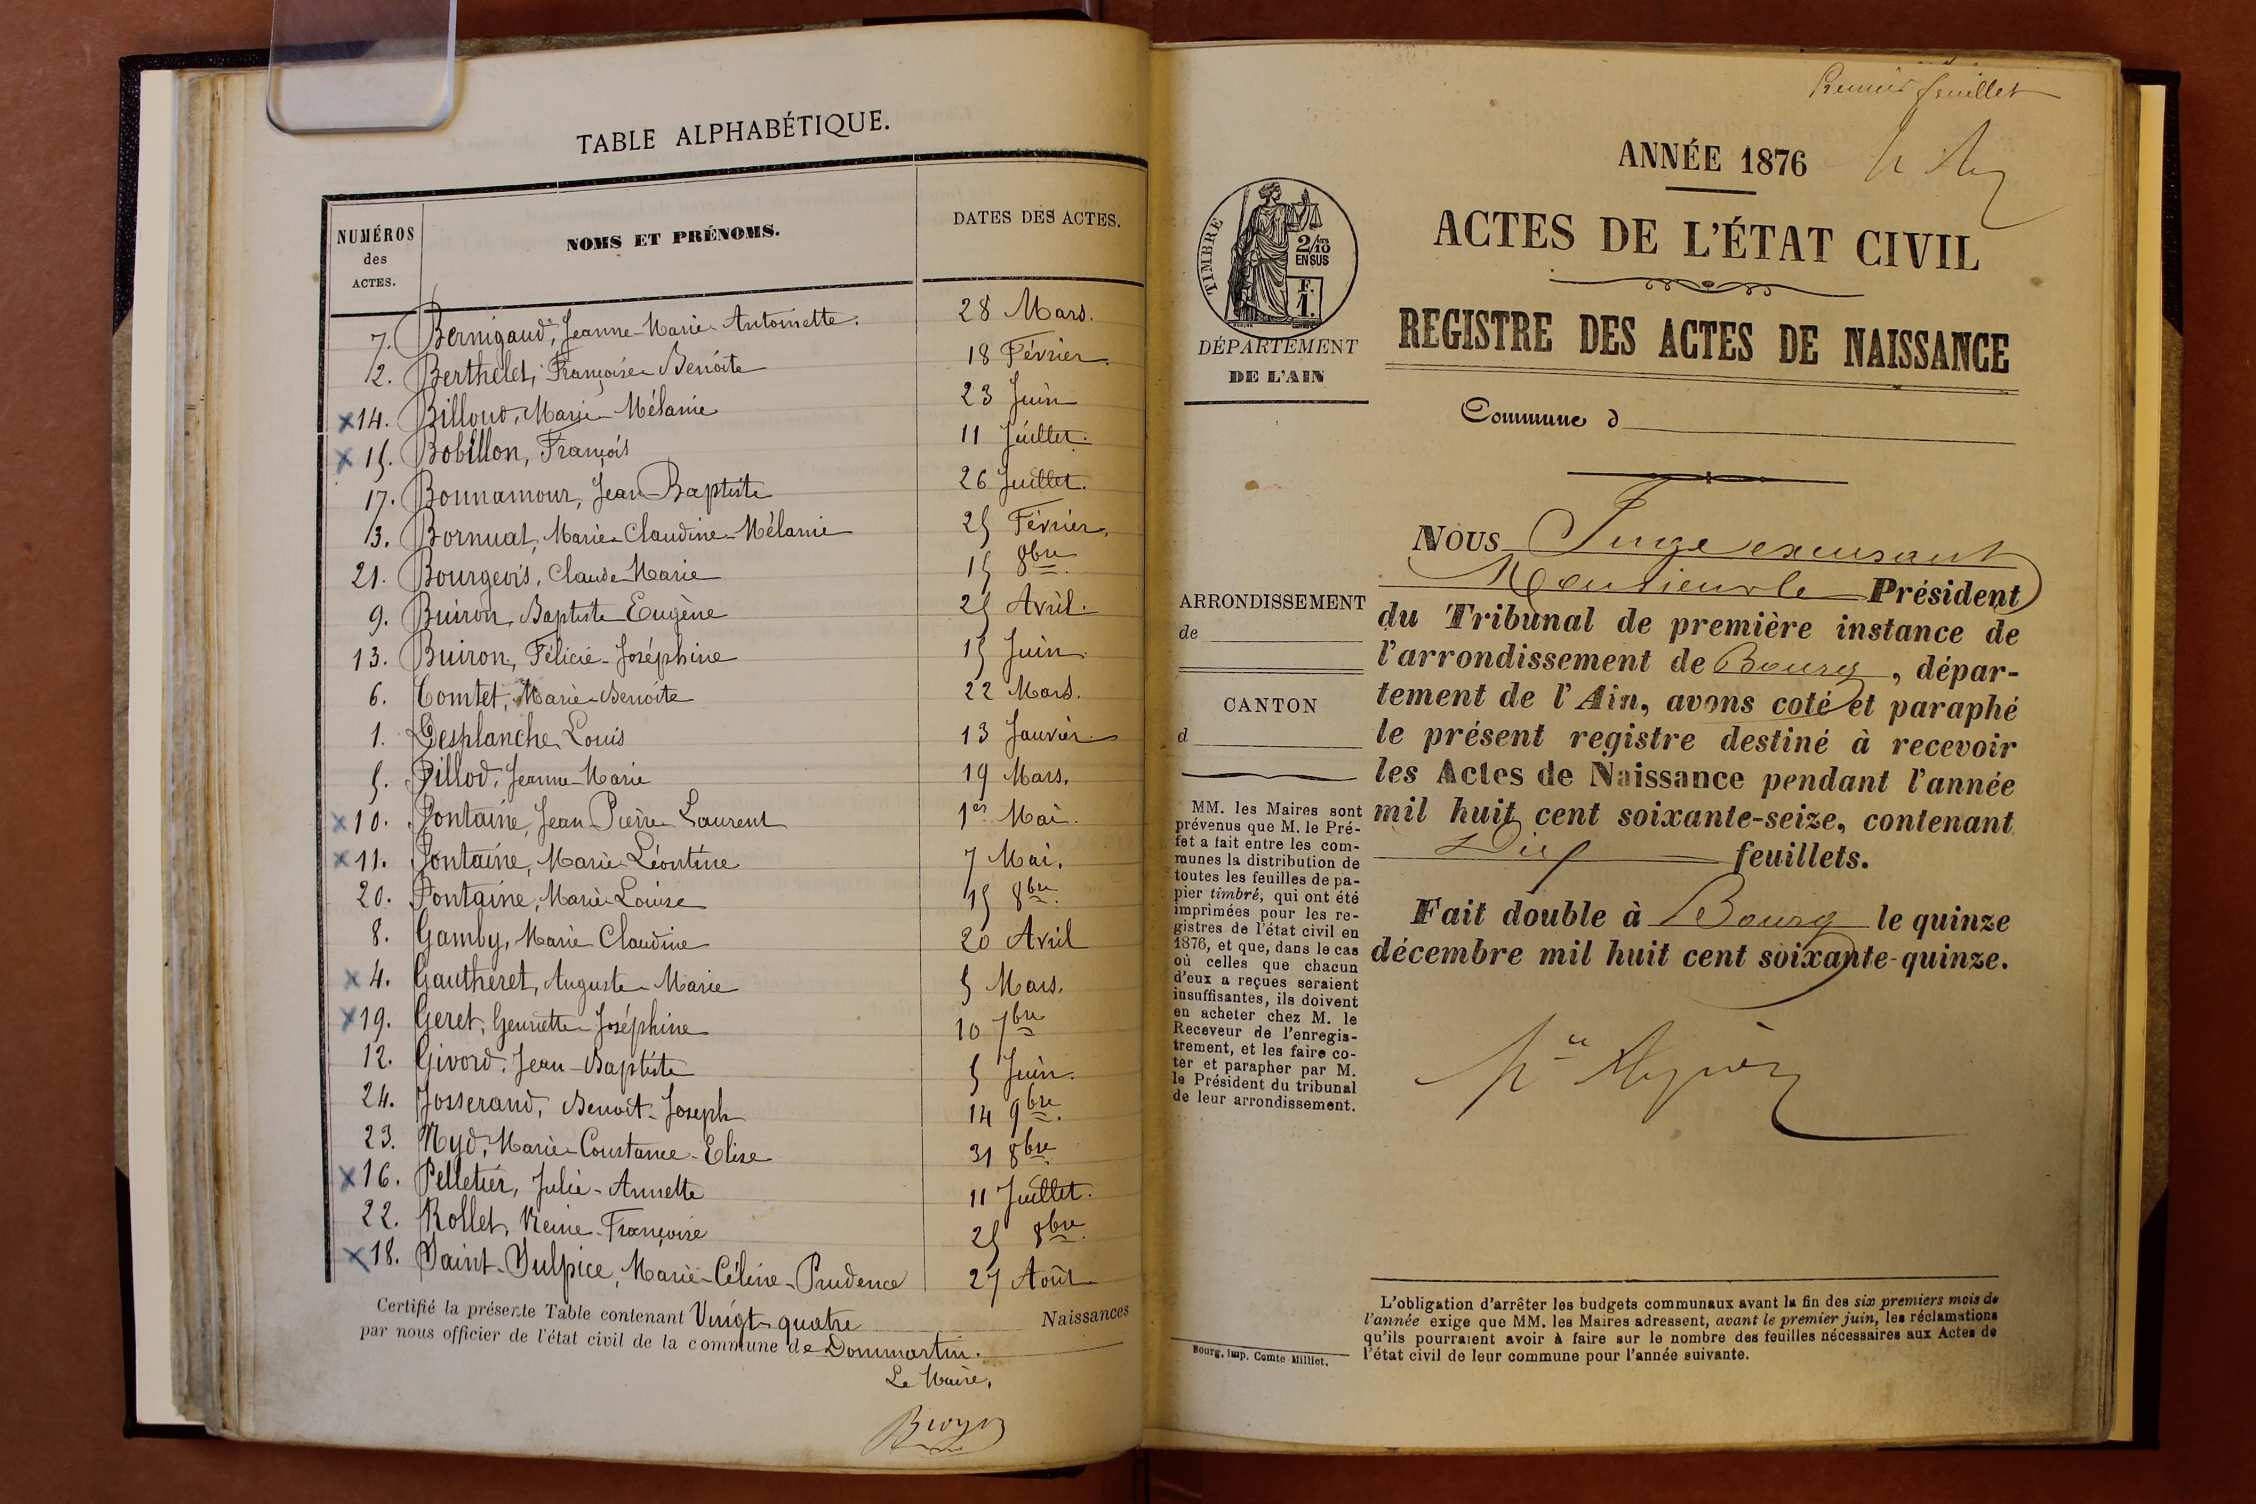 TABLE ALPHABÉTIQUE.
NUMÉROS des ACTES. NOMS ET PRÉNOMS. DATES DES ACTES.
7. Bernigaud, Jeanne-Marie-Antoinette. 28 Mars.
2. Berthelet, Françoise-Benoite 18 Février.
x 14. Billoud, Marie-Mélanie 23 Juin
x 15. Bobillon, François 11 Juillet.
17. Bonnamour, Jean-Baptiste 26 Juillet.
3. Bornuat, Marie-Claudine-Mélanie 25 Février.
21. Bourgeois, Claude Marie 15 8bre.
9. Buiron, Baptiste Eugène 25 Avril.
13. Buiron, Félicie-Joséphine 15 Juin.
6. Comtet, Marie-Benoite 22 Mars.
1. Desplanche, Louis 13 Janvier.
5. Dillod, Jeanne Marie 19 Mars.
x 10. Fontaine, Jean Pierre Laurent 1er Mai.
x 11. Fontaine, Marie Léontine 7 Mai.
20. Fontaine, Marie-Louise 15 8bre.
8. Gamby, Marie Claudine 20 Avril
x 4. Gautheret, Auguste-Marie 5 Mars.
x 19. Geret, Henriette-Joséphine 10 7bre
12. Givord, Jean-Baptiste 5 Juin.
24. Josserand, Benoît-Joseph 14 9bre.
23. Nyd, Marie-Constance-Elise 31 8bre.
x 16. Pelletier, Julie-Annette 11 Juillet.
22. Rollet, Reine-Françoise 25 8bre.
x 18. Saint-Sulpice, Marie-Céline-Prudence 27 Août
Certifié la présente Table contenant Vingt-quatre Naissances
par nous officier de l'état civil de la commune de Dommartin.
Le Maire,
Broyer
Premier feuillet
ANNÉE 1876
ACTES DE L'ÉTAT CIVIL
REGISTRE DES ACTES DE NAISSANCE
TIMBRE
2/10 EN SUS
F. 1.
DÉPARTEMENT
DE L'AIN
Commune d
ARRONDISSEMENT
de
CANTON
d
MM. les Maires sont
prévenus que M. le Pré-
fet a fait entre les com-
munes la distribution de
toutes les feuilles de pa-
pier timbré, qui ont été
imprimées pour les re-
gistres de l'état civil en
1876, et que, dans le cas
où celles que chacun
d'eux a reçues seraient
insuffisantes, ils doivent
en acheter chez M. le
Receveur de l'enregis-
trement, et les faire co-
ter et parapher par M.
le Président du tribunal
de leur arrondissement.
NOUS Juge excusant
Monsieur le Président
du Tribunal de première instance de
l'arrondissement de Bourg, dépar-
tement de l'Ain, avons coté et paraphé
le présent registre destiné à recevoir
les Actes de Naissance pendant l'année
mil huit cent soixante-seize, contenant
Dix feuillets.
Fait double à Bourg le quinze
décembre mil huit cent soixante-quinze.
L'obligation d'arrêter les budgets communaux avant la fin des six premiers mois de
l'année exige que MM. les Maires adressent, avant le premier juin, les réclamations
qu'ils pourraient avoir à faire sur le nombre des feuilles nécessaires aux Actes de
l'état civil de leur commune pour l'année suivante.
Bourg, imp. Comte Milliet.